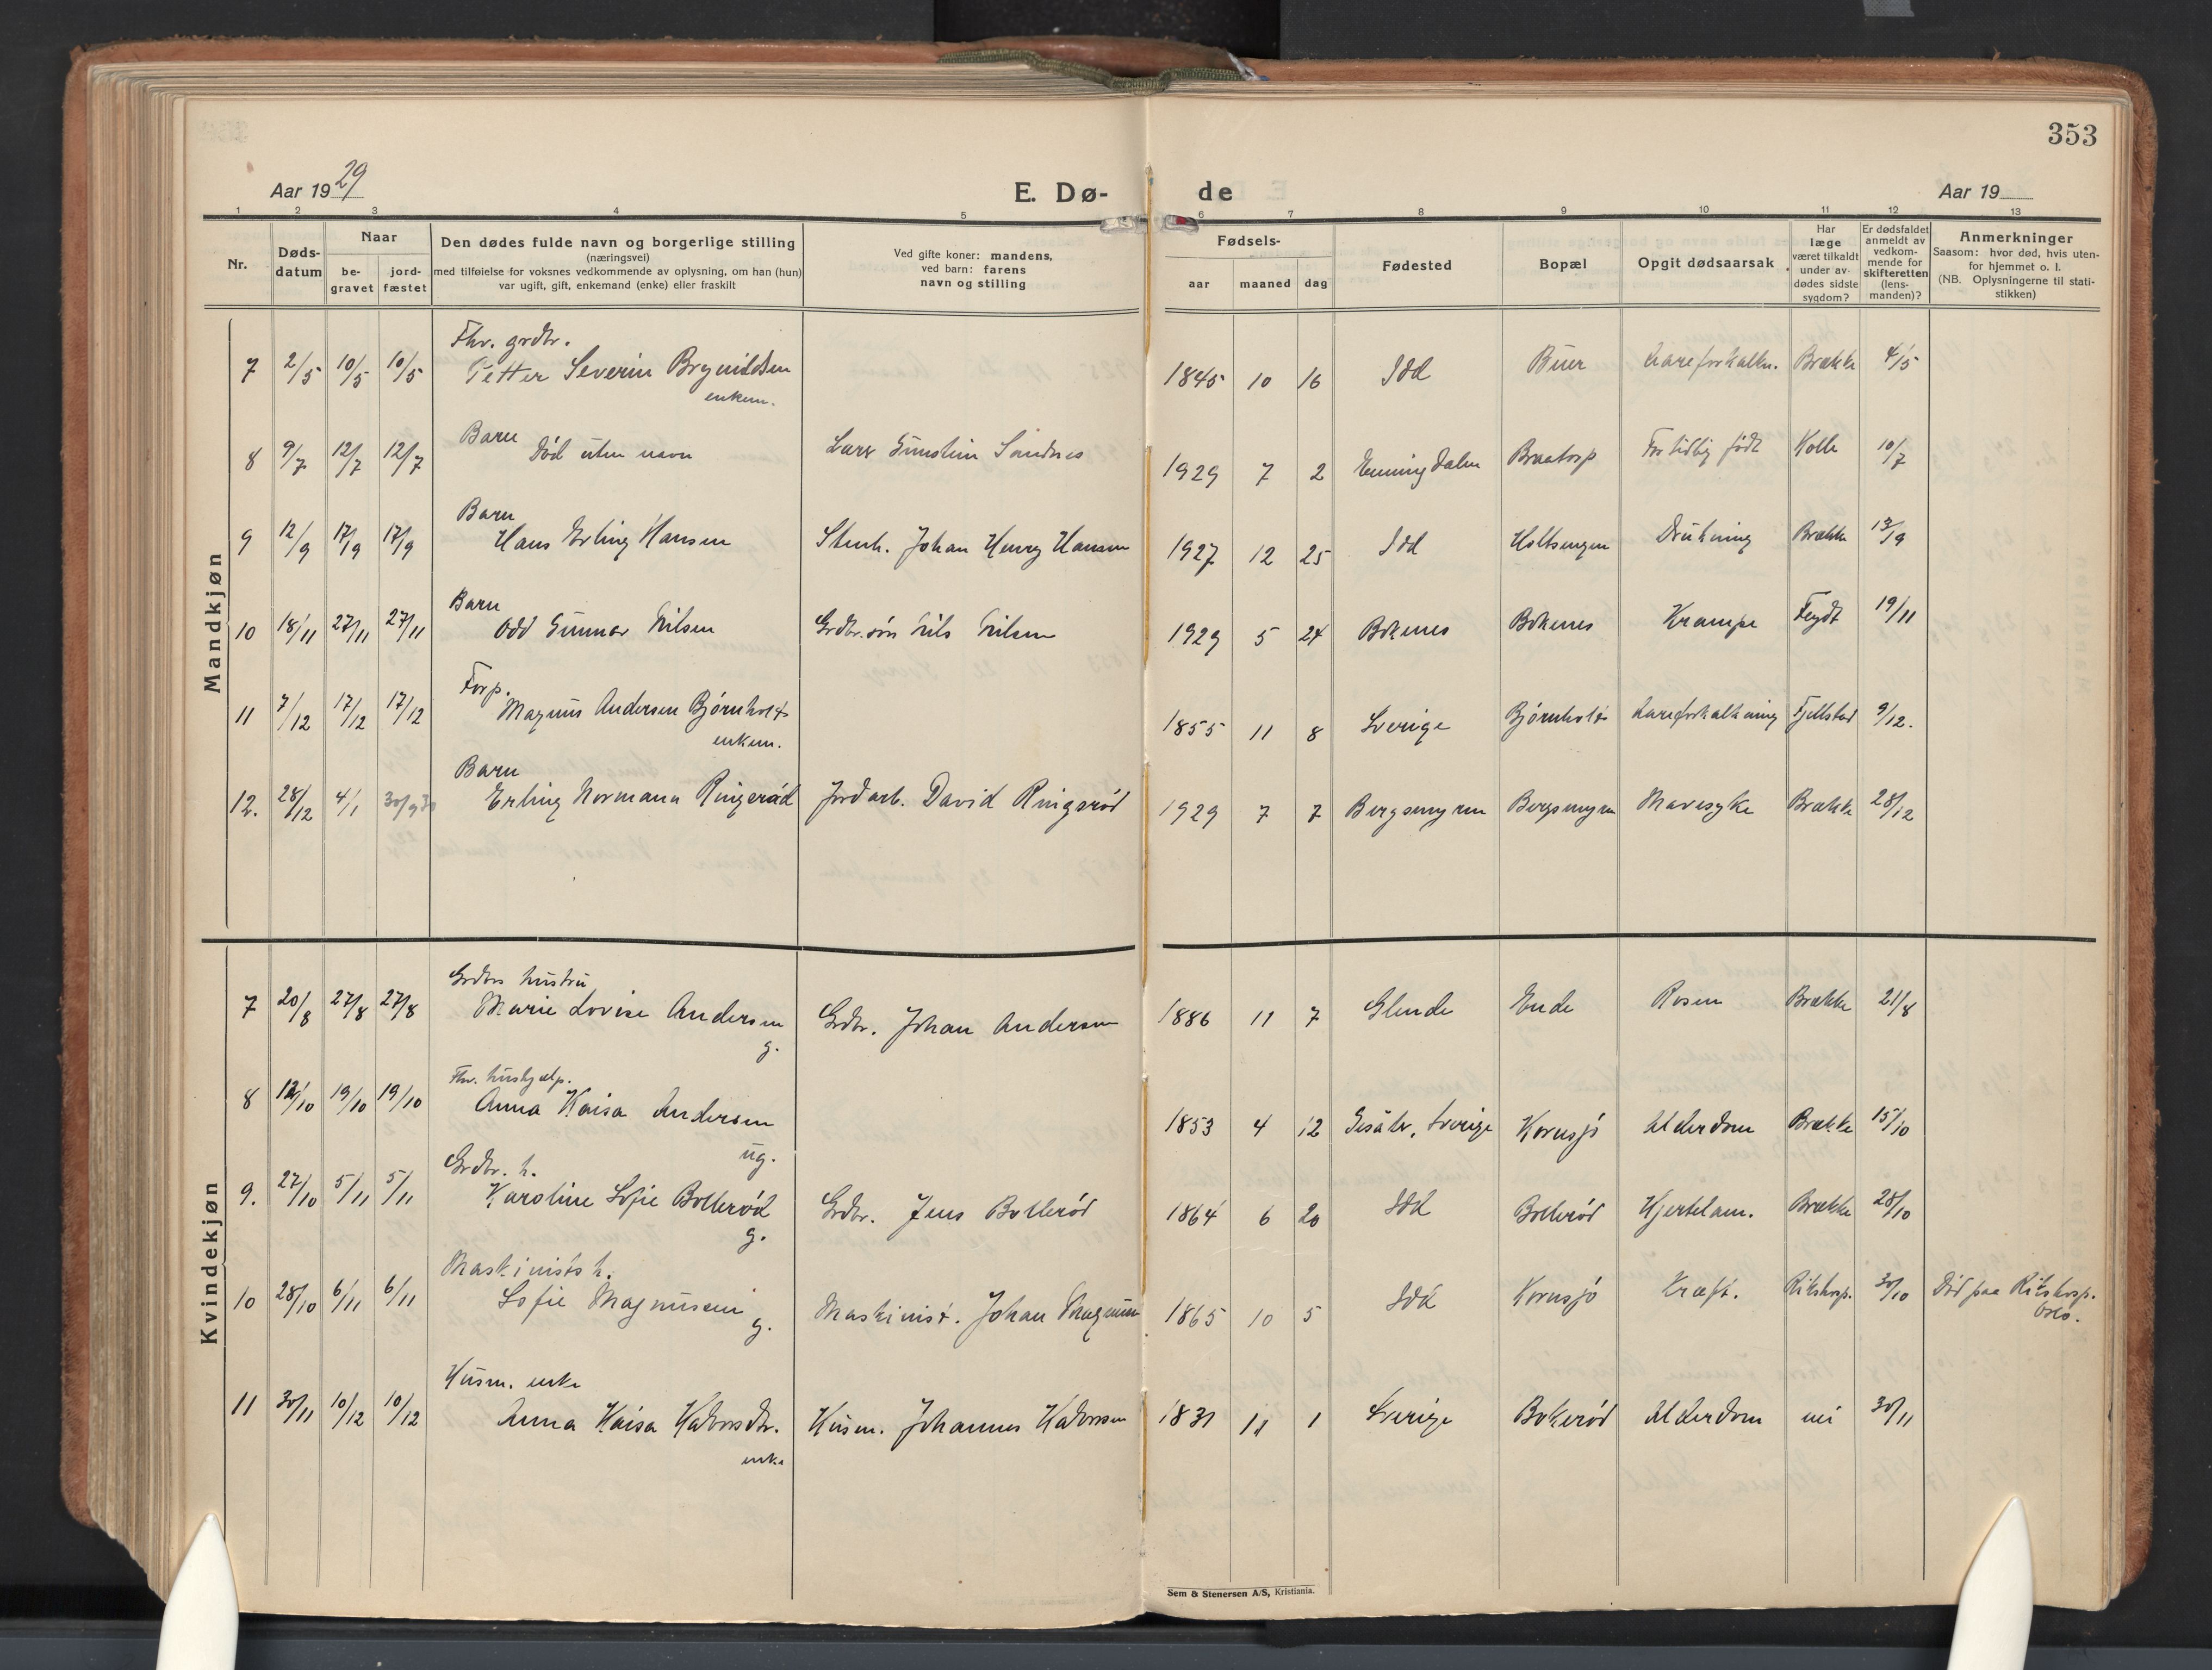 353
Aar 1929
E. Dø-
de
Aar 19
1 2 3 4 5 6 7 8 9 10 11 12 13
Nr.
Døds-
datum
Naar
be-
gravet
jord-
fæstet
Den dødes fulde navn og borgerlige stilling
(næringsvei)
med tilføielse for voksnes vedkommende av oplysning, om han (hun)
var ugift, gift, enkemand (enke) eller fraskilt
Ved gifte koner: mandens,
ved barn: farens
navn og stilling
Fødsels-
aar maaned dag
Fødested
Bopæl
Opgit dødsaarsak
Har
læge
været tilkaldt
under av-
dødes sidste
sygdom?
Er dødsfaldet
anmeldt av
vedkom-
mende for
skifteretten
(lens-
manden)?
Anmerkninger
Saasom: hvor død, hvis uten-
for hjemmet o. l.
(NB. Oplysningerne til stati-
stikken)
Mandkjøn
Fhv. grdbr.
7 2/5 10/5 10/5 Petter Severin Brynildsen 1845 10 16 Idd Buer Aareforkalkn. Brække 4/5
enkem.
Barn
8 9/7 12/7 12/7 Død uten navn Lars Sandnes 1929 7 2 Enningdalen Braatorp For tidlig født Kolle 10/7
Barn
9 12/9 17/9 17/9 Hans Erling Hansen Stenh. Johan Henry Hansen 1927 12 25 Idd Holtsengen Drukning Brække 13/9
Barn
10 18/11 27/11 27/11 Odd Gunnar Nilsen Grdbr.søn Nils Nilsen 1929 5 24 Bokenes Bokenes Krampe Feydt 19/11
Forp.
11 7/12 17/12 17/12 Magnus Andersen Bjørnholt 1855 11 8 Sverige Bjørnholt Aareforkalkning Fjellstad 9/12.
enkem.
Barn
12. 28/12 4/1 30/9 30 Erling Normann Ringerød Jordarb. David Ringsrød 1929 7 7 Bergsmyren Bergsmyren Mavesyke Brække 28/12
Kvindekjøn
Grdbrs hustru
7 20/8 27/8 27/8 Marie Lovise Andersen Grdbr. Johan Andersen 1886 11 7 Glende Ende Rosen Brække 21/8
g.
Fhv. hushjælp.
8 19/10 19/10 Anna Kaisa Andersen 1853 4 12 Sverige Kornsjø Alderdom Brække 15/10
ug.
Grdbr. h.
9. 27/10 5/11 5/11 Karoline Sofie Bollerød Grdbr. Jens Bollerød 1864 6 20 Idd Bollerød Hjertelam. Brække 28/10
g.
Maskinists h.
10 28/10 6/11 6/11 Sofie Magnusen Maskinist. Johan Magnusen 1865 10 5 Idd Kornsjø Kræft. Rikshosp. 30/10 Død paa Rikshosp.
g. Oslo.
Husm. enke
11 30/11 10/12 10/12 Anna Kaisa Halvorsdtr. Husm. Johannes Halvorsen 1831 11 1 Sverige Bokerød Alderdom nei 30/11
enke
Sem & Stenersen A/S, Kristiania.